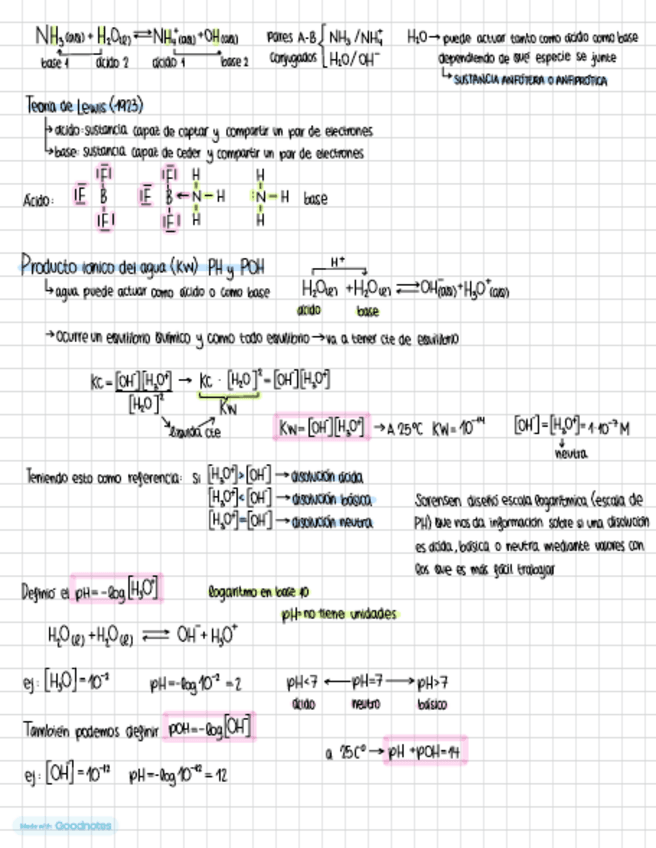 NH₃(aq) + H₂O(l) ⇌ NH₄⁺(aq) + OH⁻(aq)
base 1 ácido 2 ácido 1 base 2
Pares A-B Conjugados { NH₃ / NH₄⁺
H₂O/OH⁻
H₂O → puede actuar tanto como ácido como base
dependiendo de qué especie se junte
↳ SUSTANCIA ANFÓTERA O ANFIPRÓTICA
Teoría de Lewis (1923)
↳ ácido: sustancia capaz de captar y compartir un par de electrones
↳ base: sustancia capaz de ceder y compartir un par de electrones
|F| |F| H H
Ácido: |F B |F B ← N – H :N – H base
|F| |F| H H
Producto iónico del agua (Kw) PH y POH
↳ agua puede actuar como ácido o como base
H⁺
H₂O(l) + H₂O(l) ⇌ OH⁻(aq) + H₃O⁺(aq)
ácido base
→ Ocurre un equilibrio químico y como todo equilibrio → va a tener cte de equilibrio
Kc = [OH⁻][H₃O⁺] / [H₂O]² → Kc · [H₂O]² = [OH⁻][H₃O⁺]
Kw
líquida cte
Kw = [OH⁻][H₃O⁺] → A 25ºC Kw = 10⁻¹⁴ [OH⁻] = [H₃O⁺] = 1·10⁻⁷ M
neutra
Teniendo esto como referencia: Si [H₃O⁺] > [OH⁻] → disolución ácida
[H₃O⁺] < [OH⁻] → disolución básica
[H₃O⁺] = [OH⁻] → disolución neutra
Sorensen diseñó escala logarítmica (escala de
PH) que nos da información sobre si una disolución
es ácida, básica o neutra mediante valores con
los que es más fácil trabajar
Definió el pH = -log [H₃O⁺] logaritmo en base 10
pH = no tiene unidades
H₂O(l) + H₂O(l) ⇌ OH⁻ + H₃O⁺
ej: [H₃O] = 10⁻² pH = -log 10⁻² = 2 pH<7 ← pH=7 → pH>7
ácido neutro básico
También podemos definir pOH = -log [OH⁻]
a 25Cº → pH + pOH = 14
ej: [OH⁻] = 10⁻¹² pH = -log 10⁻¹² = 12
Made with Goodnotes